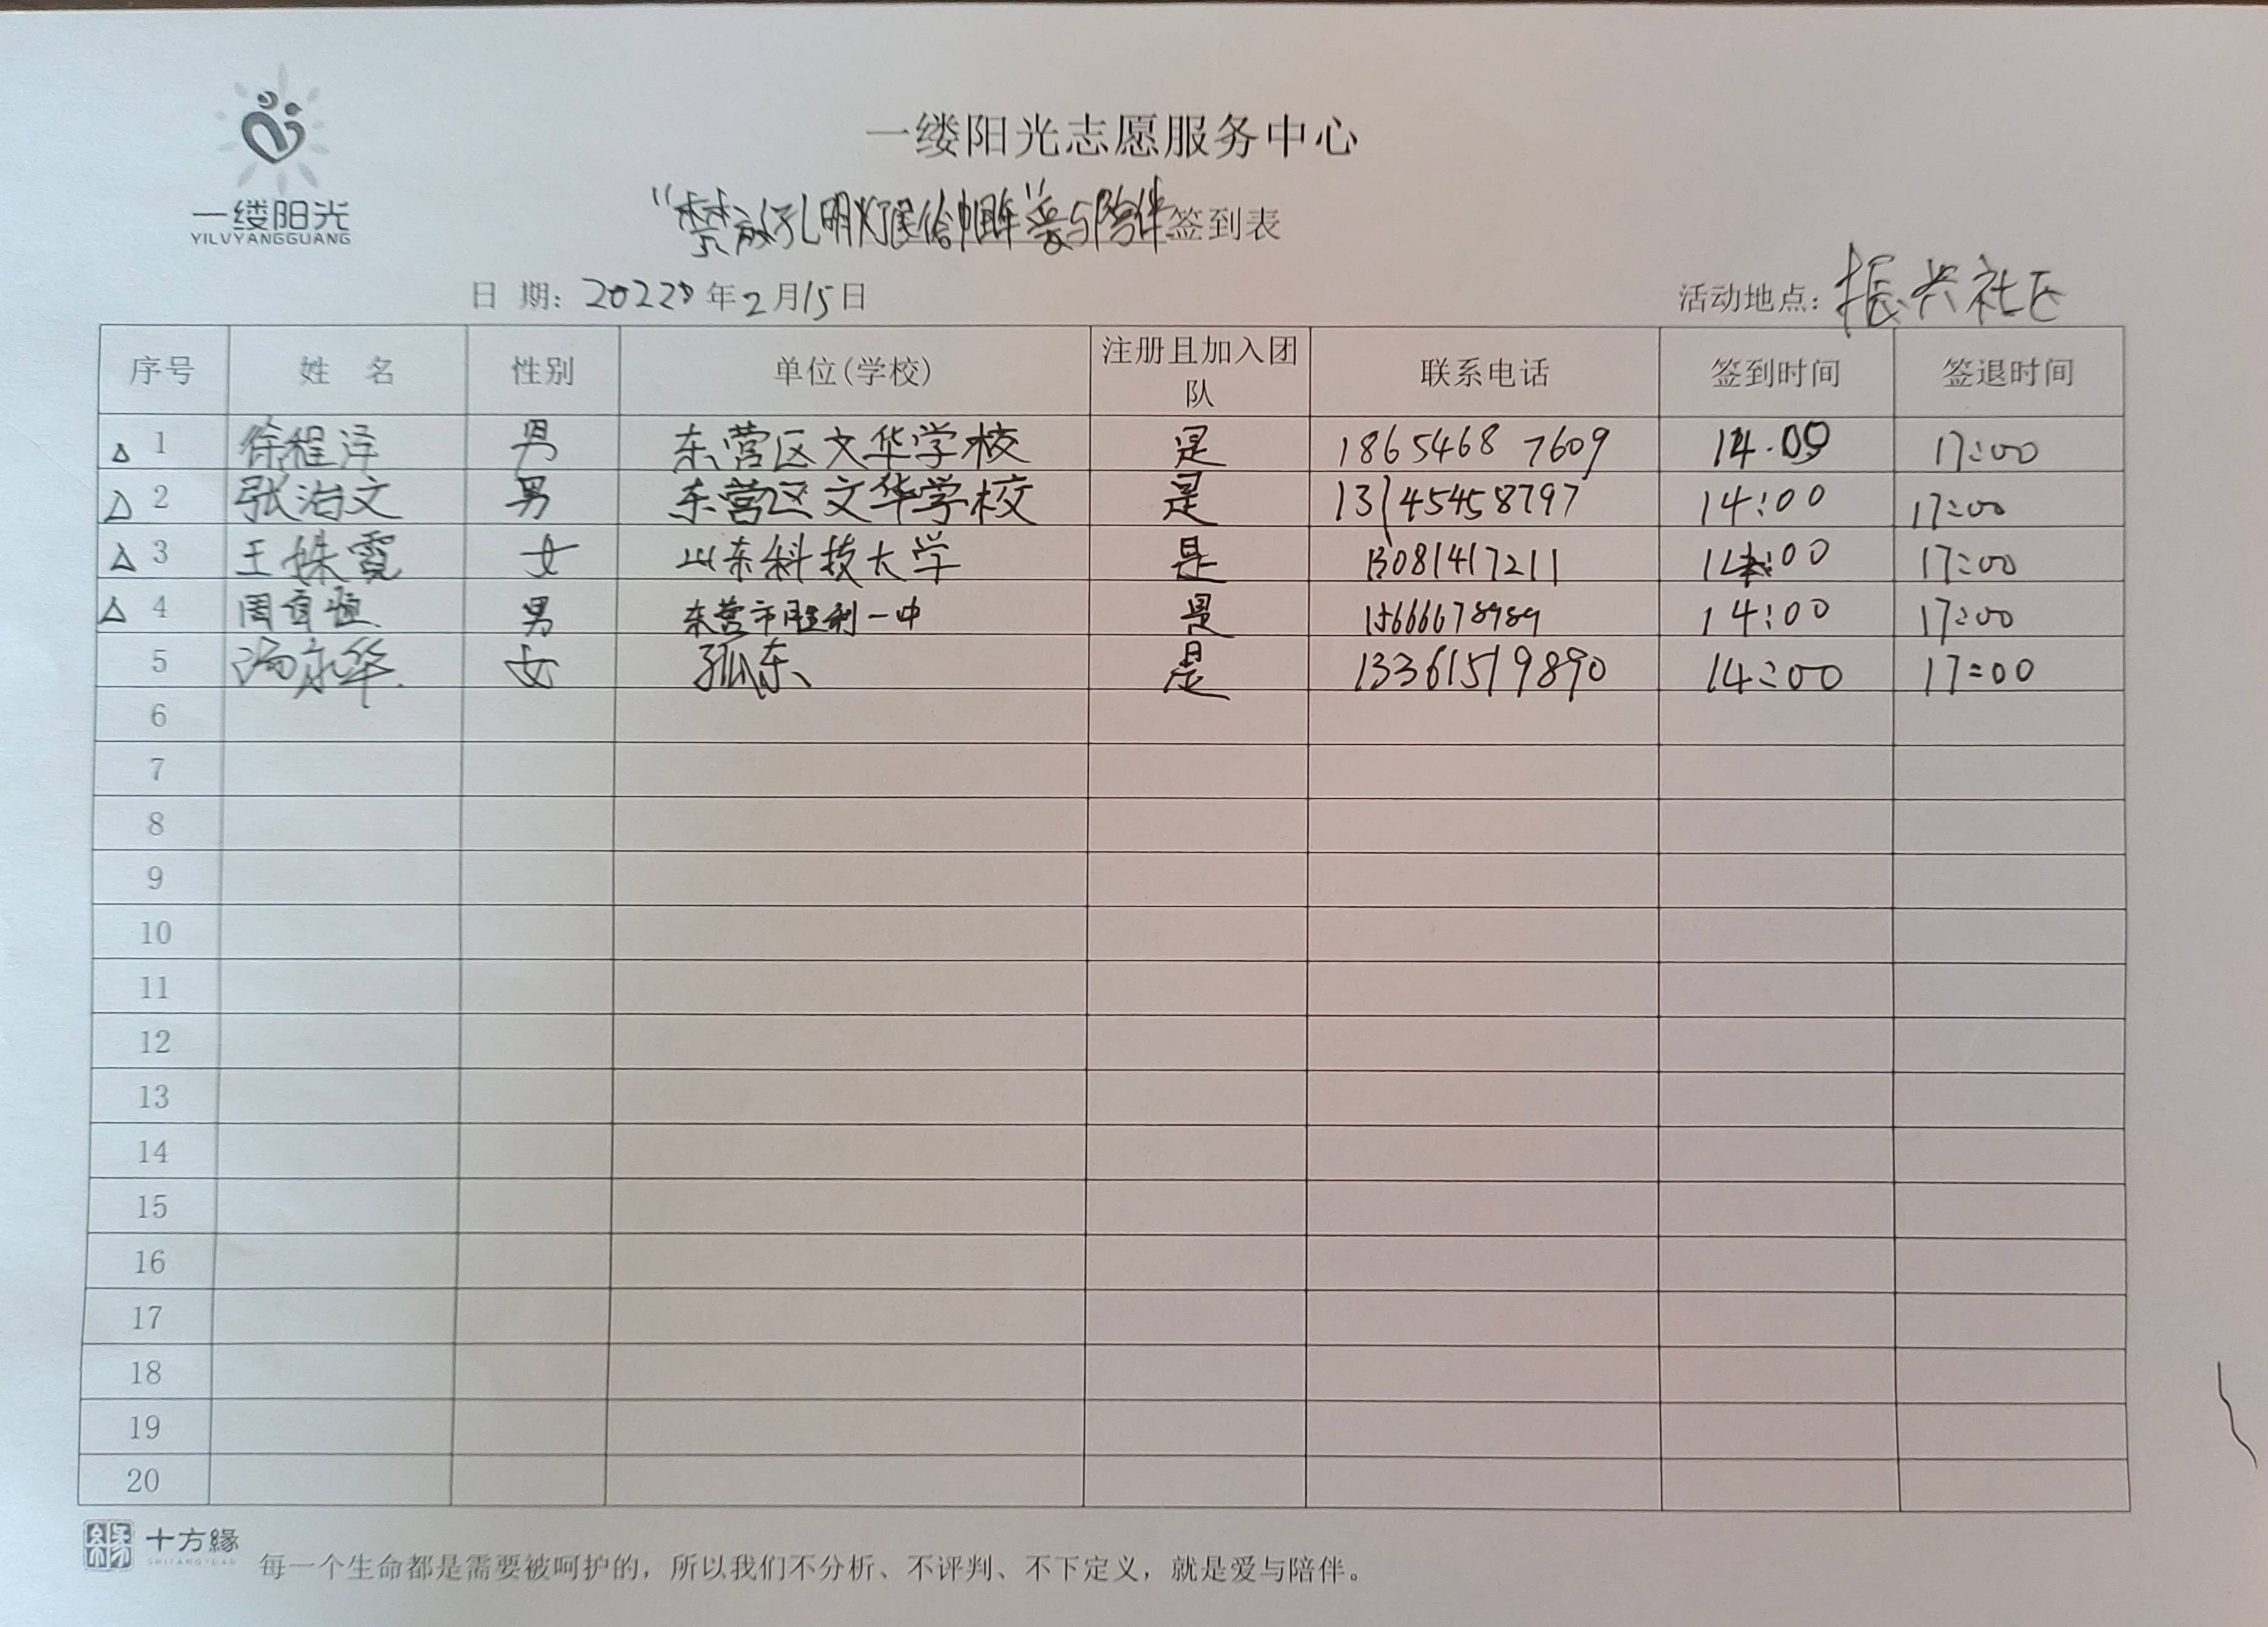 一缕阳光志愿服务中心
一缕阳光
YILVYANGGUANG
“禁放孔明灯 爱与陪伴签到表
日 期: 2022年2月15日 活动地点: 振兴社区
序号 姓 名 性别 单位(学校) 注册且加入团队 联系电话 签到时间 签退时间
△ 1 徐程泽 男 东营区文华学校 是 18654687609 14:00 17:00
△ 2 张洺文 男 东营区文华学校 是 13145458797 14:00 17:00
△ 3 王姝霓 女 山东科技大学 是 13081417211 14:00 17:00
△ 4 周 恒 男 东营市胜利一中 是 15666678989 14:00 17:00
5 冯永华 女 孤东 是 13361519890 14:00 17:00
6
7
8
9
10
11
12
13
14
15
16
17
18
19
20
十方緣
SHIFANGYUAN
每一个生命都是需要被呵护的，所以我们不分析、不评判、不下定义，就是爱与陪伴。